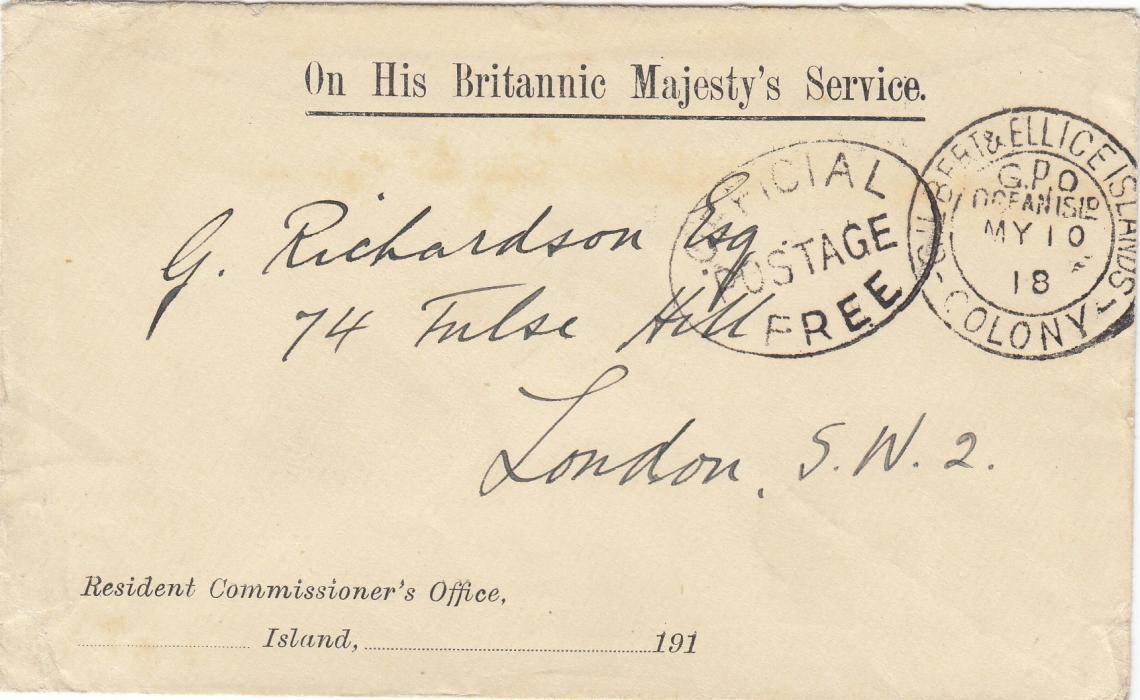 On His Britannic Majesty's Service.
OFFICIAL
POSTAGE
FREE
GILBERT & ELLICE ISLANDS
G.P.O
OCEAN ISLD
MY 10
18
- COLONY -
G. Richardson Esq.
74 Tulse Hill
London, S.W. 2.
Resident Commissioner's Office,
Island, 191